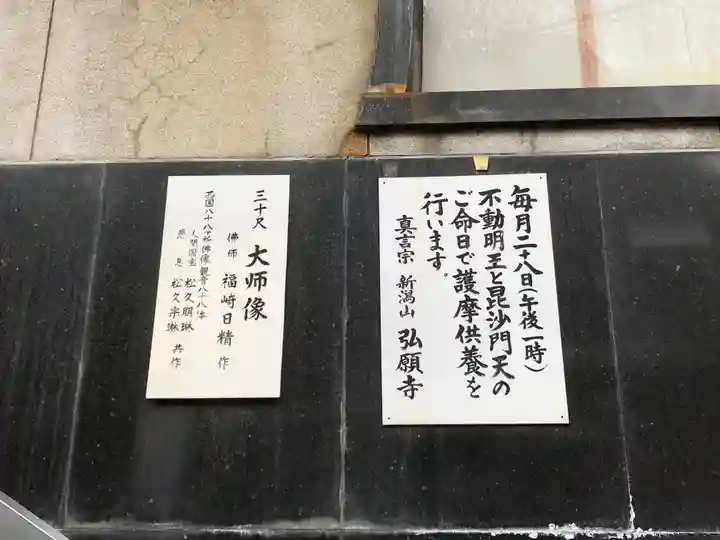 毎月二十八日(午後一時)
不動明王と毘沙門天の
ご命日で護摩供養を
行います。
真言宗 新潟山 弘願寺
三十尺 大师像
佛师 福崎日精 作
四国八十八ヶ所佛像観音八十八体
人間国宝 松久朋琳
松久宗琳 共作